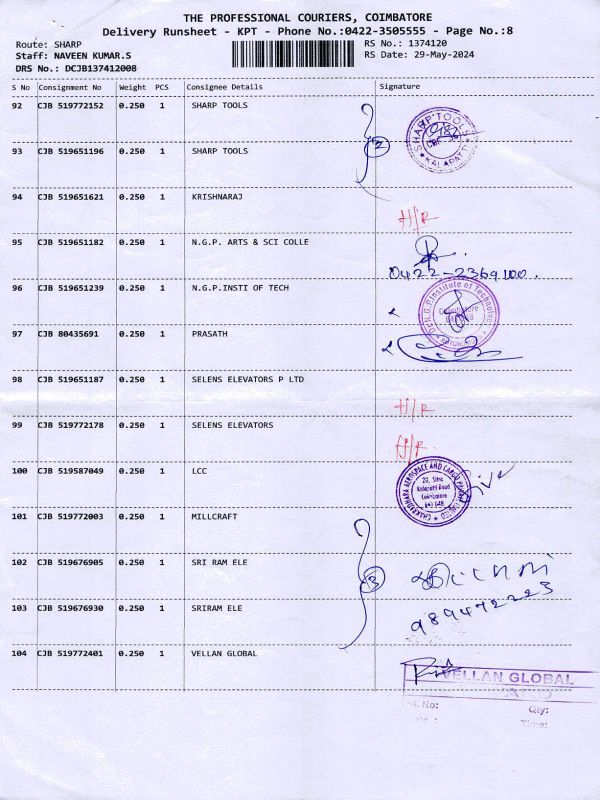 THE PROFESSIONAL COURIERS, COIMBATORE
Delivery Runsheet - KPT - Phone No.:0422-3505555 - Page No.:8
Route: SHARP RS No.: 1374120
Staff: NAVEEN KUMAR.S RS Date: 29-May-2024
DRS No.: DCJB137412008
S No Consignment No Weight PCS Consignee Details Signature
92 CJB 519772152 0.250 1 SHARP TOOLS
SHARP TOOLS
KALAPATTI
2
93 CJB 519651196 0.250 1 SHARP TOOLS
94 CJB 519651621 0.250 1 KRISHNARAJ
H/R
95 CJB 519651182 0.250 1 N.G.P. ARTS & SCI COLLE
0422-2369100.
96 CJB 519651239 0.250 1 N.G.P.INSTI OF TECH
Dr.N.G.P.Institute of Technology
Coimbatore
97 CJB 80435691 0.250 1 PRASATH
98 CJB 519651187 0.250 1 SELENS ELEVATORS P LTD
H/R
99 CJB 519772178 0.250 1 SELENS ELEVATORS
H/R
100 CJB 519587049 0.250 1 LCC
CHAKRADHARA AEROSPACE AND CARGO PRIVATE LIMITED
Kalapatti Road
Coimbatore
641 048
101 CJB 519772003 0.250 1 MILLCRAFT
102 CJB 519676905 0.250 1 SRI RAM ELE
3
103 CJB 519676930 0.250 1 SRIRAM ELE
104 CJB 519772401 0.250 1 VELLAN GLOBAL
VELLAN GLOBAL
No: Qty:
Time: